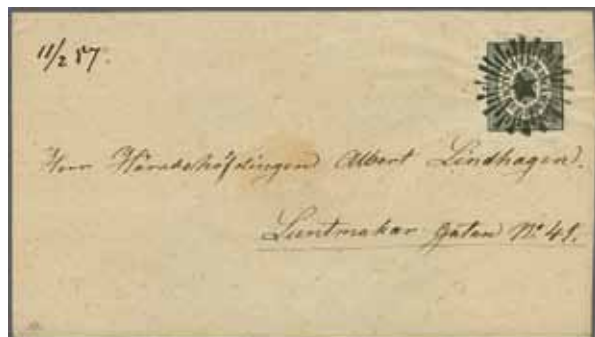 11/2 57.
Herr Häradshöfdingen Albert Lindhagen.
Luntmakar gatan No 49.